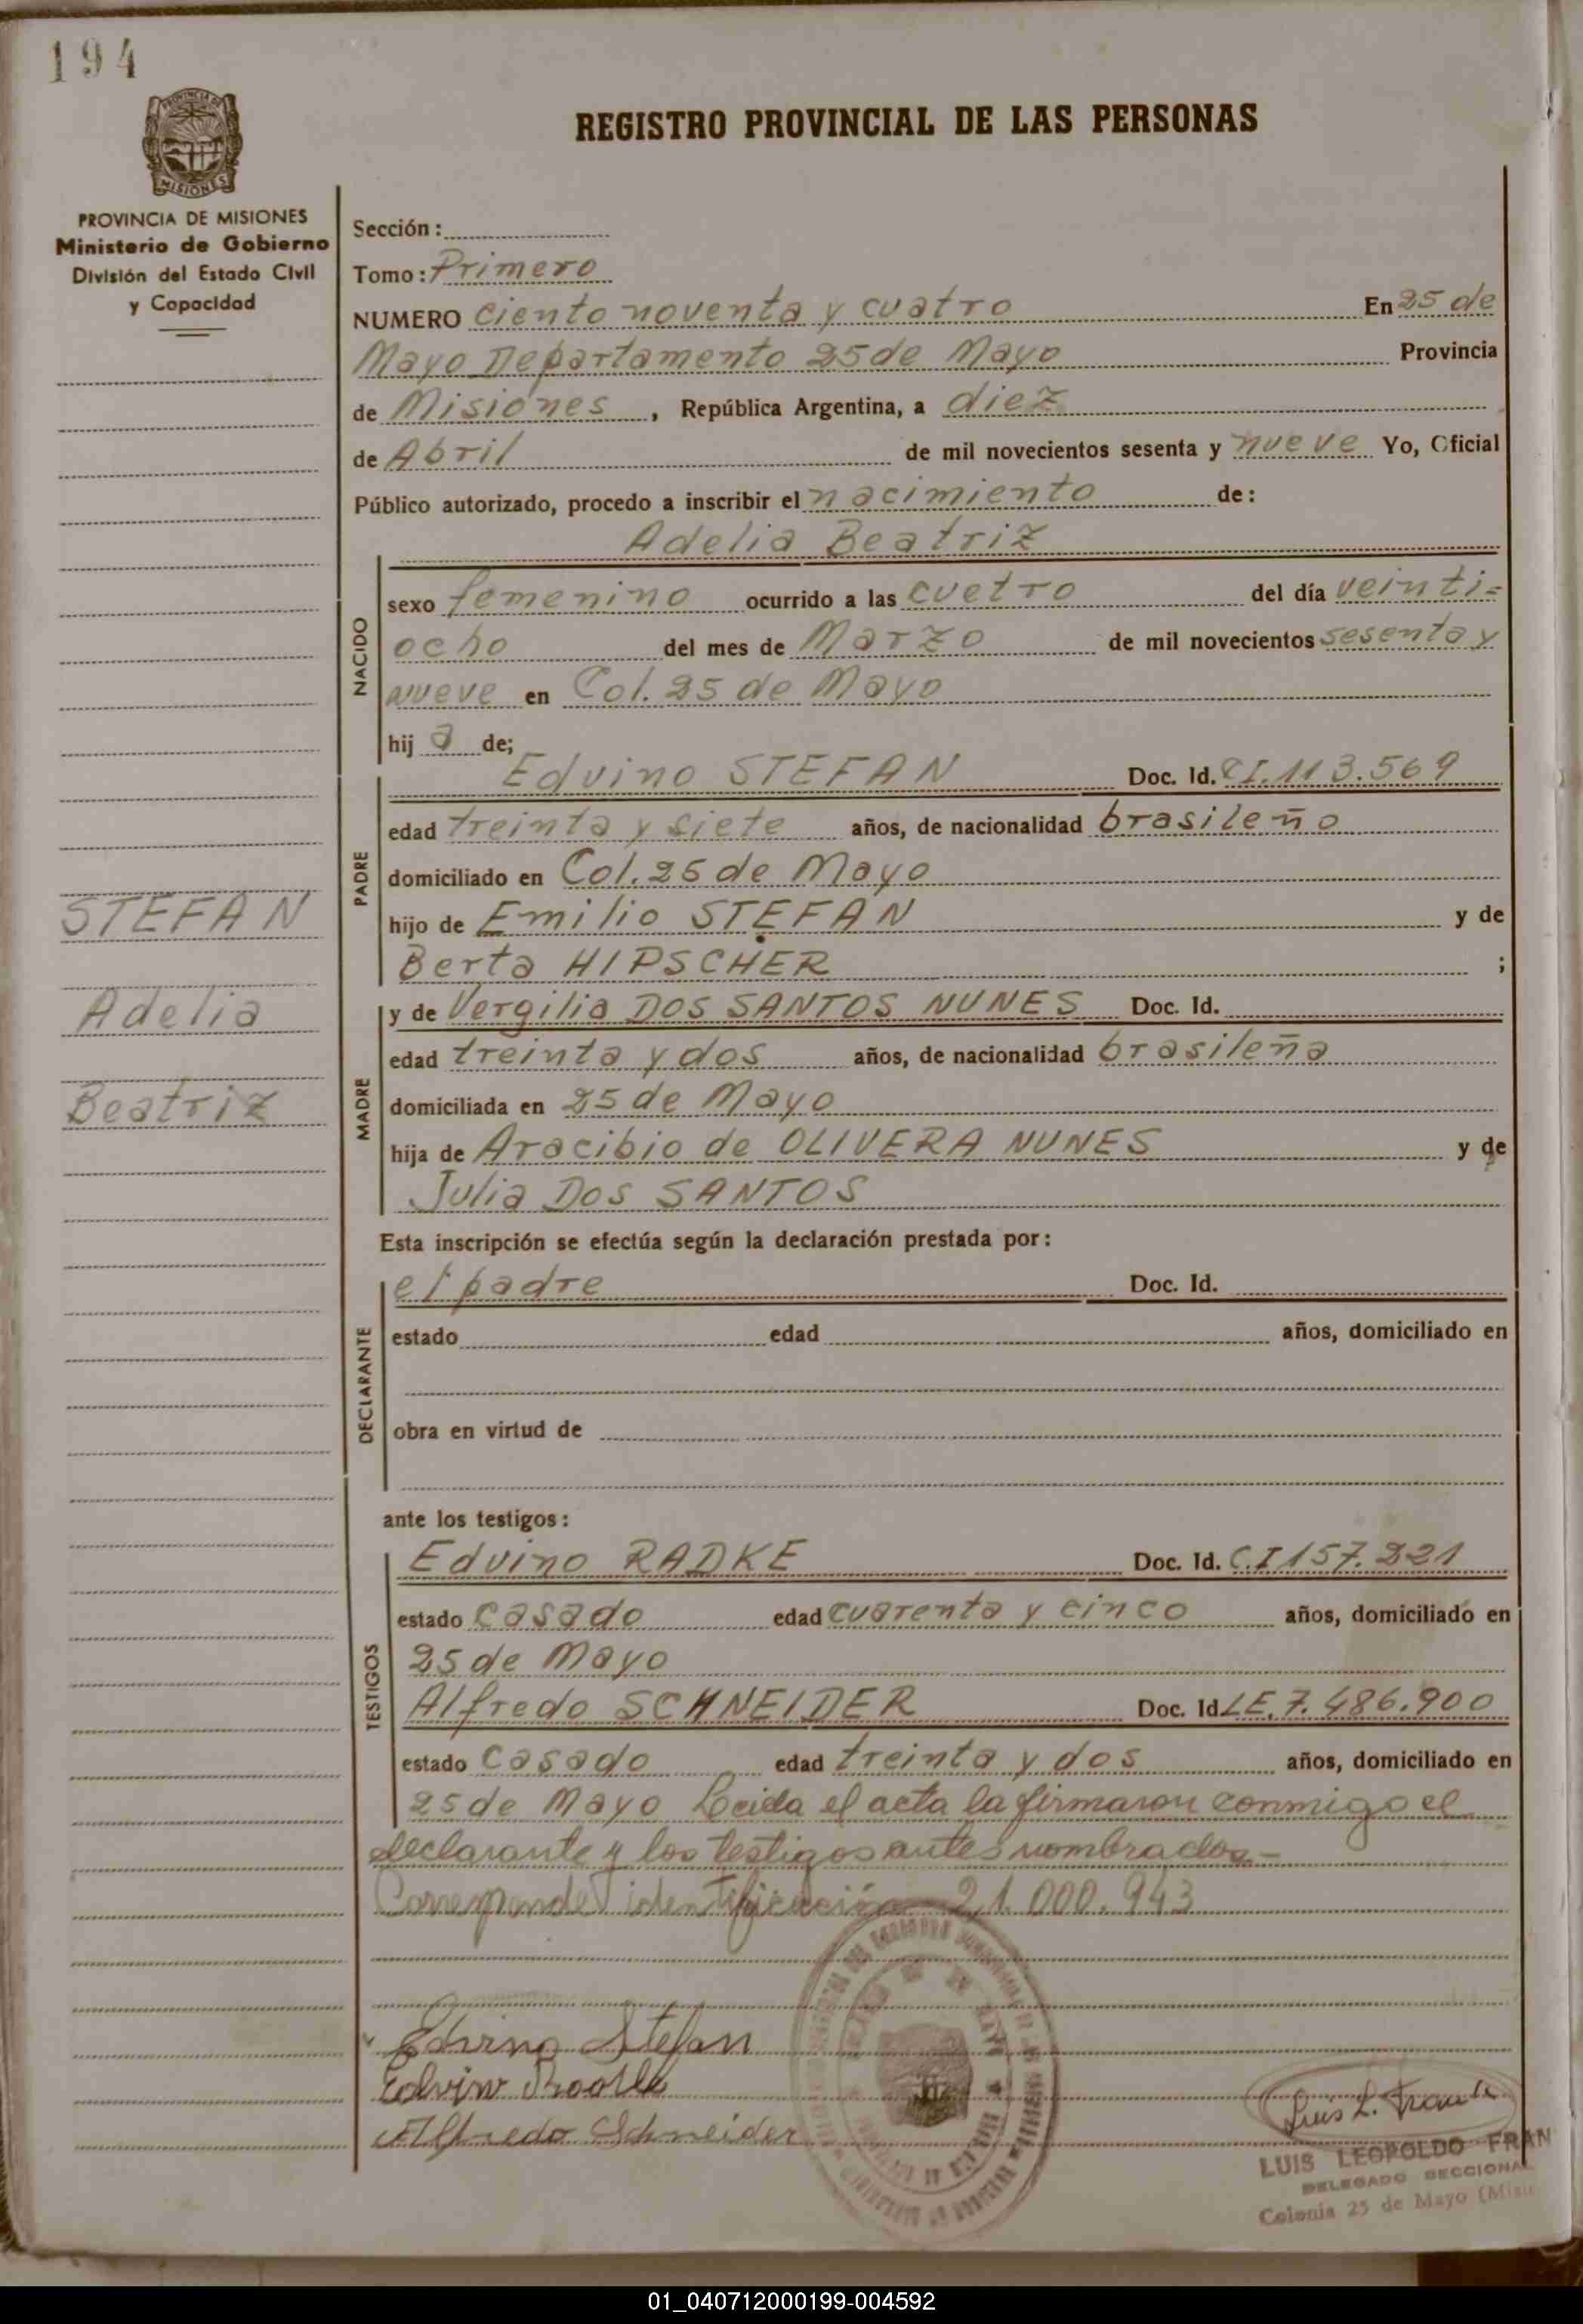 194
PROVINCIA DE MISIONES
PROVINCIA DE MISIONES
Ministerio de Gobierno
División del Estado Civil
y Capacidad
REGISTRO PROVINCIAL DE LAS PERSONAS
Sección:
Tomo: Primero
NUMERO Ciento noventa y cuatro En 25 de
Mayo Departamento 25 de Mayo Provincia
de Misiones, República Argentina, a diez
de Abril de mil novecientos sesenta y nueve Yo, Oficial
Público autorizado, procedo a inscribir el nacimiento de:
Adelia Beatriz
NACIDO
sexo femenino ocurrido a las cuetro del día veinti=
ocho del mes de Marzo de mil novecientos sesenta y
nueve en Col. 25 de Mayo
hij a de;
PADRE
Edvino STEFAN Doc. Id. CI. 113.569
edad treinta y siete años, de nacionalidad brasileño
domiciliado en Col. 25 de Mayo
hijo de Emilio STEFAN y de
Berta HIPSCHER ;
STEFAN
Adelia
Beatriz
MADRE
y de Vergilia DOS SANTOS NUNES Doc. Id.
edad treinta y dos años, de nacionalidad brasileña
domiciliada en 25 de Mayo
hija de Aracibio de OLIVERA NUNES y de
Julia DOS SANTOS
Esta inscripción se efectúa según la declaración prestada por:
DECLARANTE
el padre Doc. Id.
estado edad años, domiciliado en
obra en virtud de
ante los testigos:
TESTIGOS
Edvino RADKE Doc. Id. C.I 157.221
estado casado edad cuarenta y cinco años, domiciliado en
25 de Mayo
Alfredo SCHNEIDER Doc. Id LE. 7.486.900
estado casado edad treinta y dos años, domiciliado en
25 de Mayo Leida el acta la firmaron conmigo el
declarante y los testigos antes nombrados.-
Corresponde identificación 21.000.943
Edvino Stefan
Edvin
Alfredo Schneider
Luis L.
LUIS LEOPOLDO FRAN
DELEGADO SECCIONAL
Colonia 25 de Mayo (Misi
01_040712000199-004592